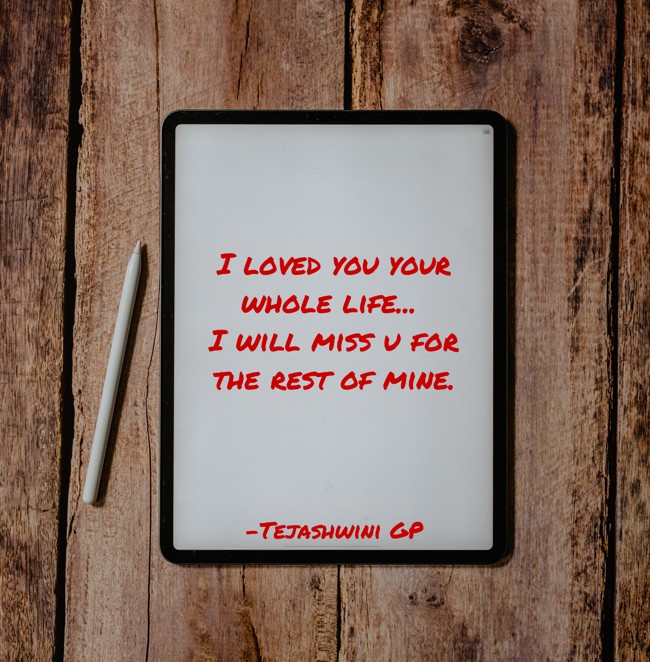 I LOVED YOU YOUR
WHOLE LIFE...
I WILL MISS U FOR
THE REST OF MINE.
-TEJASHWINI GP